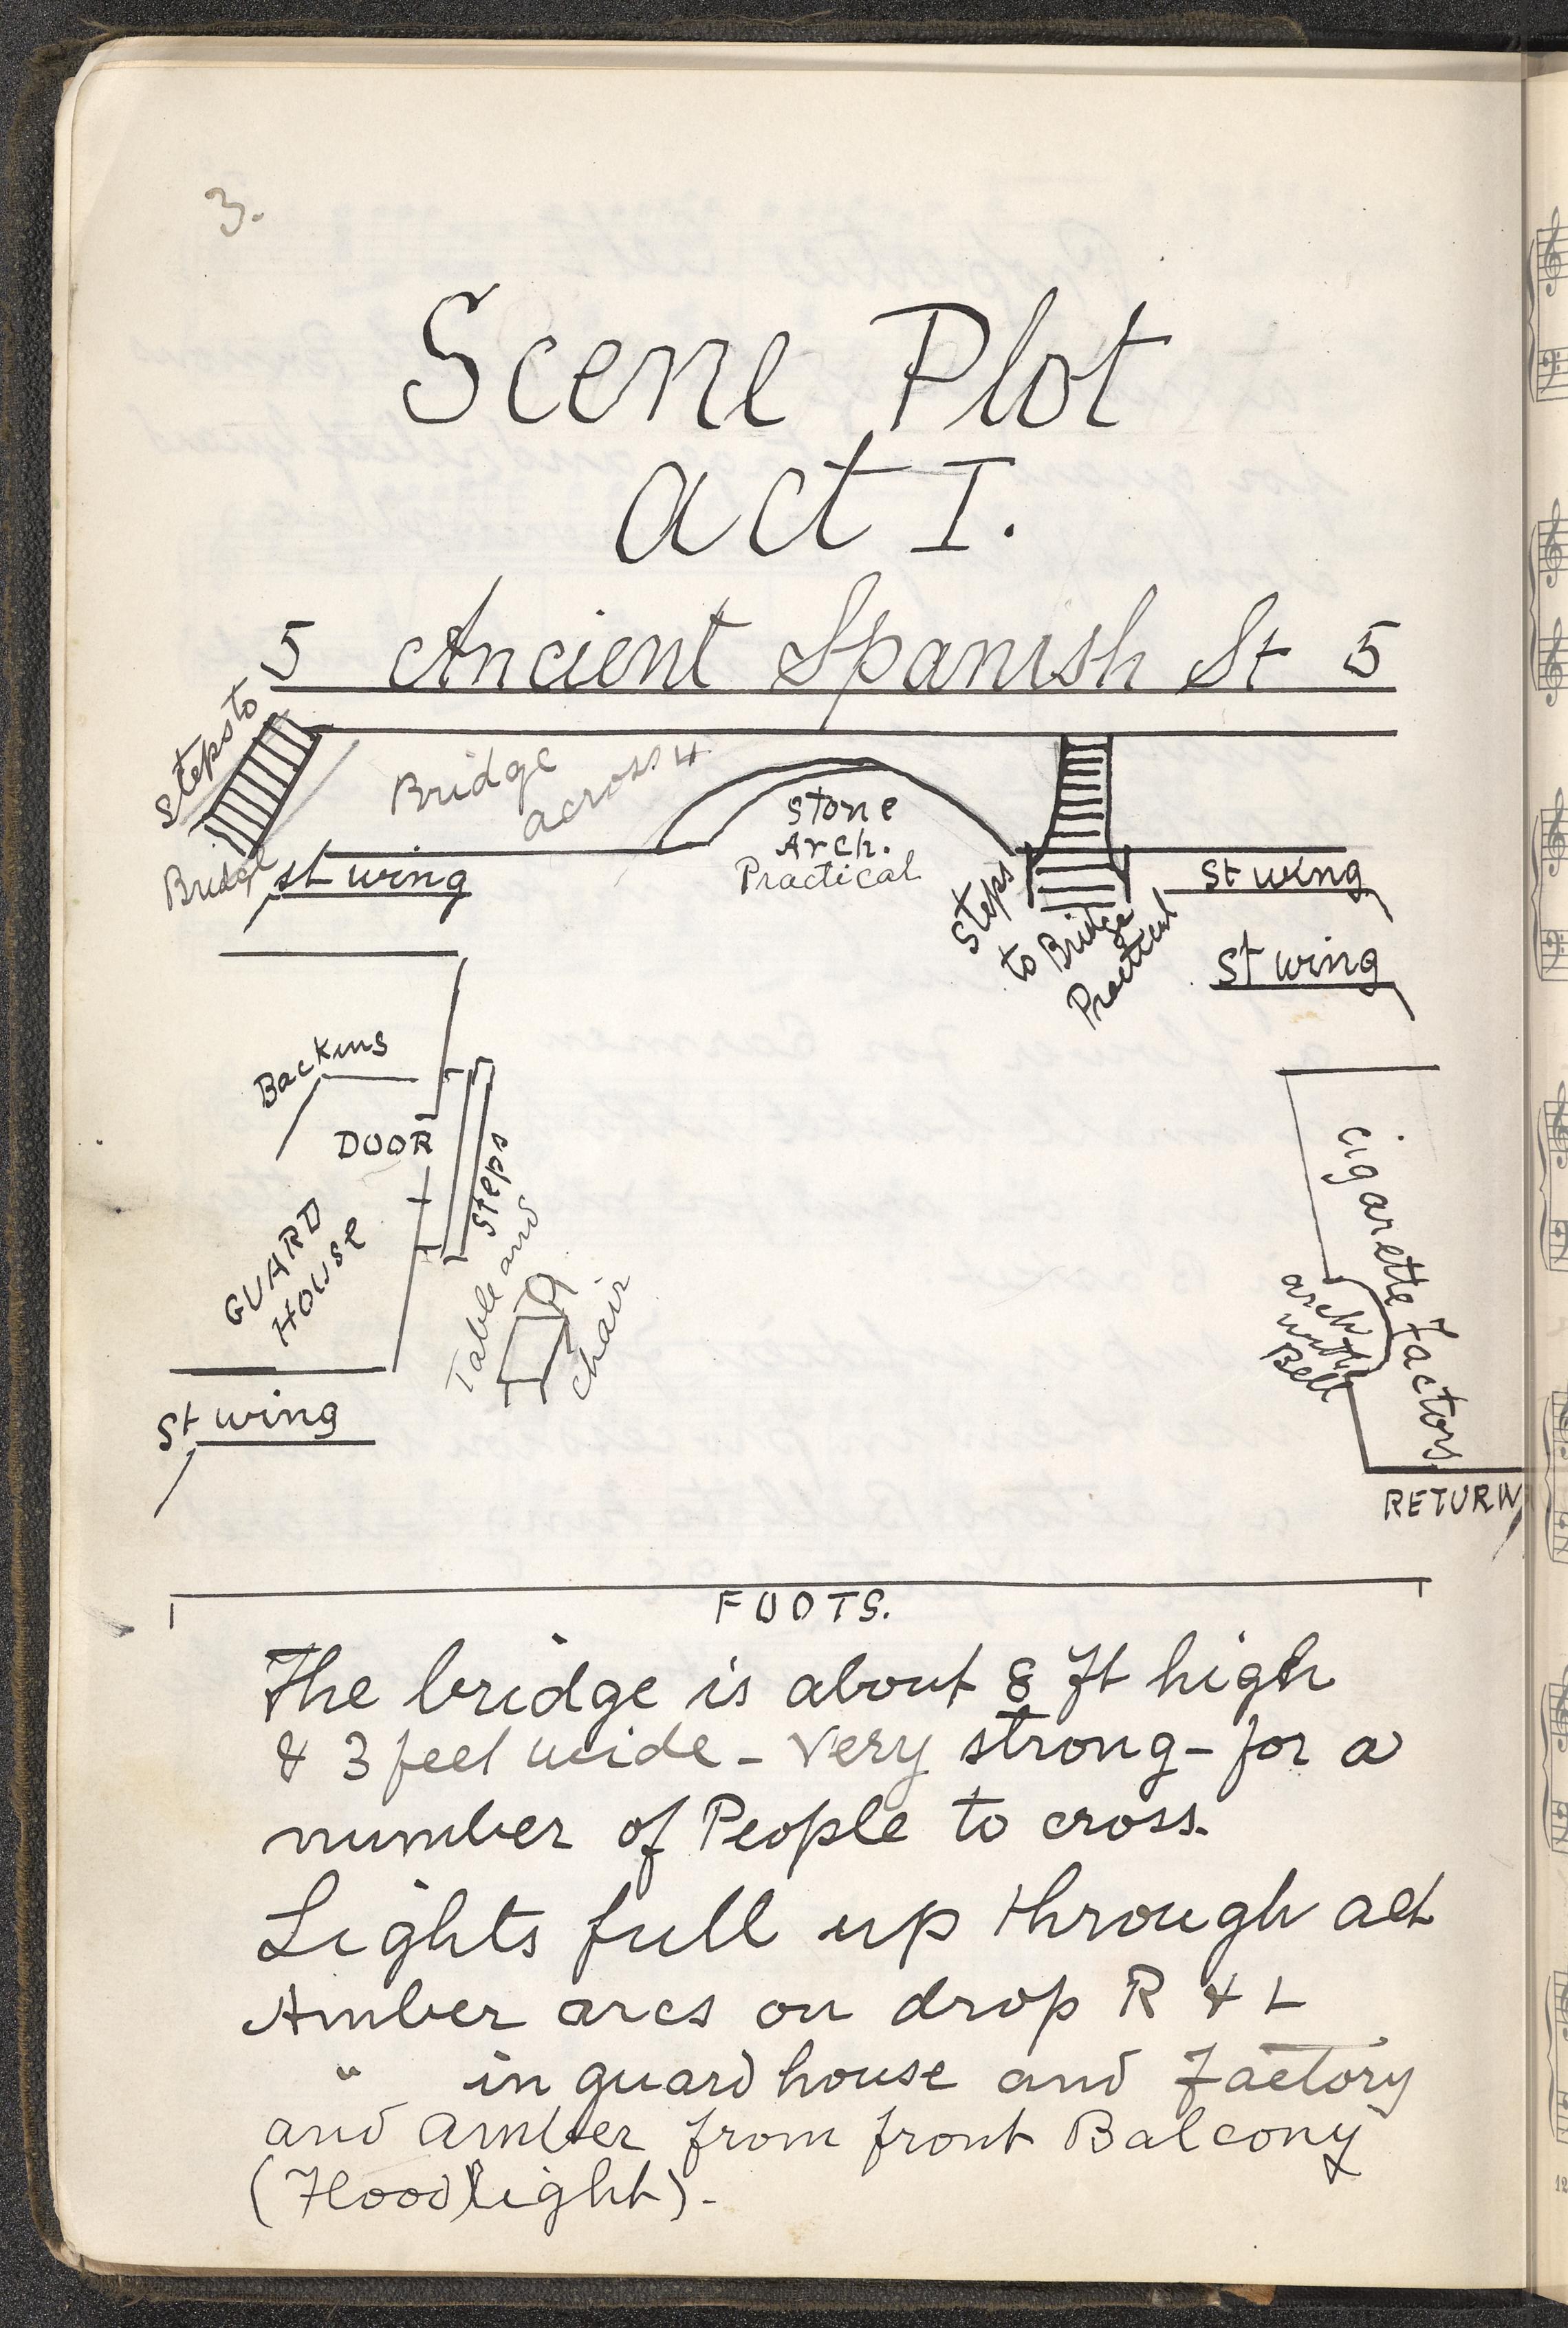 3.
Scene Plot
Act I.
5 Ancient Spanish St 5
Steps to
Bridge
Bridge
across 4
Stone
Arch.
Practical
st wing
Steps
to Bridge
Practical
St wing
St wing
Backing
DOOR
Steps
GUARD
HOUSE
Table and
chair
cigarette Factory
arch
with
Bell
St wing
RETURN
FOOTS.
The bridge is about 8 ft high
& 3 feet wide - Very strong - for a
number of People to cross.
Lights full up through act
Amber arcs on drop R & L
" in guard house and Factory
and Amber from front Balcony
(Floodlight).